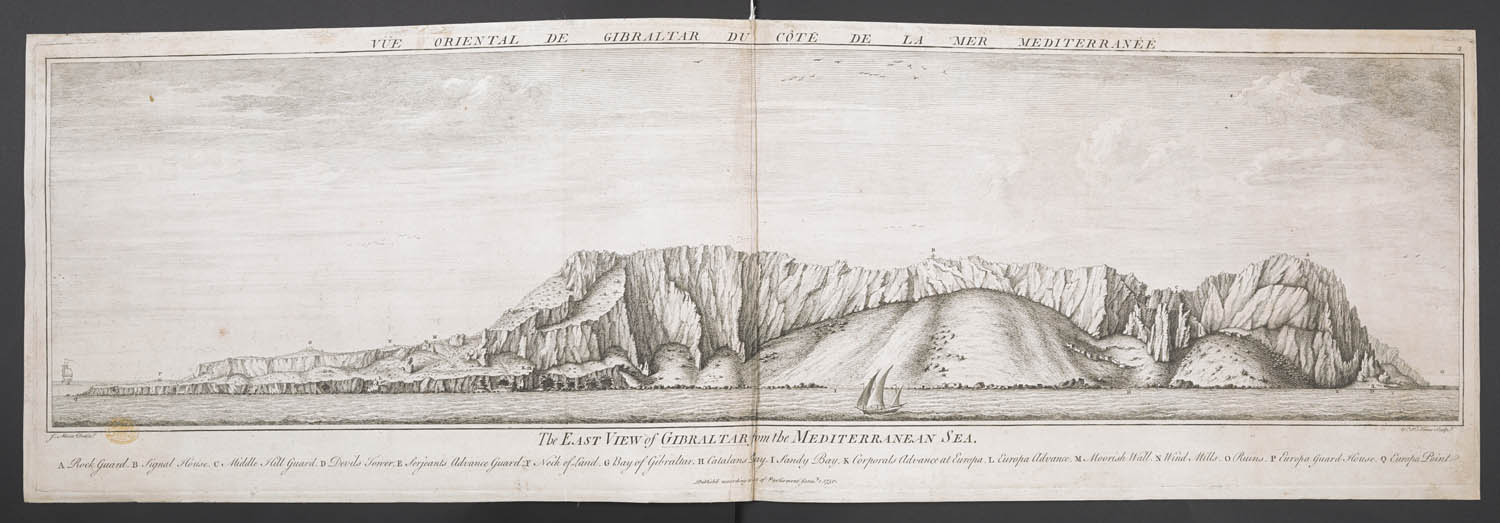 VÜE ORIENTAL DE GIBRALTAR DU CÔTE DE LA MER MEDITERRANÉE
2
The EAST VIEW of GIBRALTAR from the MEDITERRANEAN SEA.
A Rock Guard. B Signal House. C Middle Hill Guard. D Devils Tower. E Serjeants Advance Guard. Neck of Land. G Bay of Gibraltar. H Catalans Bay. I Sandy Bay. K Corporals Advance at Europa. L Europa Advance. M Moorish Wall. N Wind Mills. O Ruins. P Europa Guard House. Q Europa Point
Publish'd according to Act of Parliament